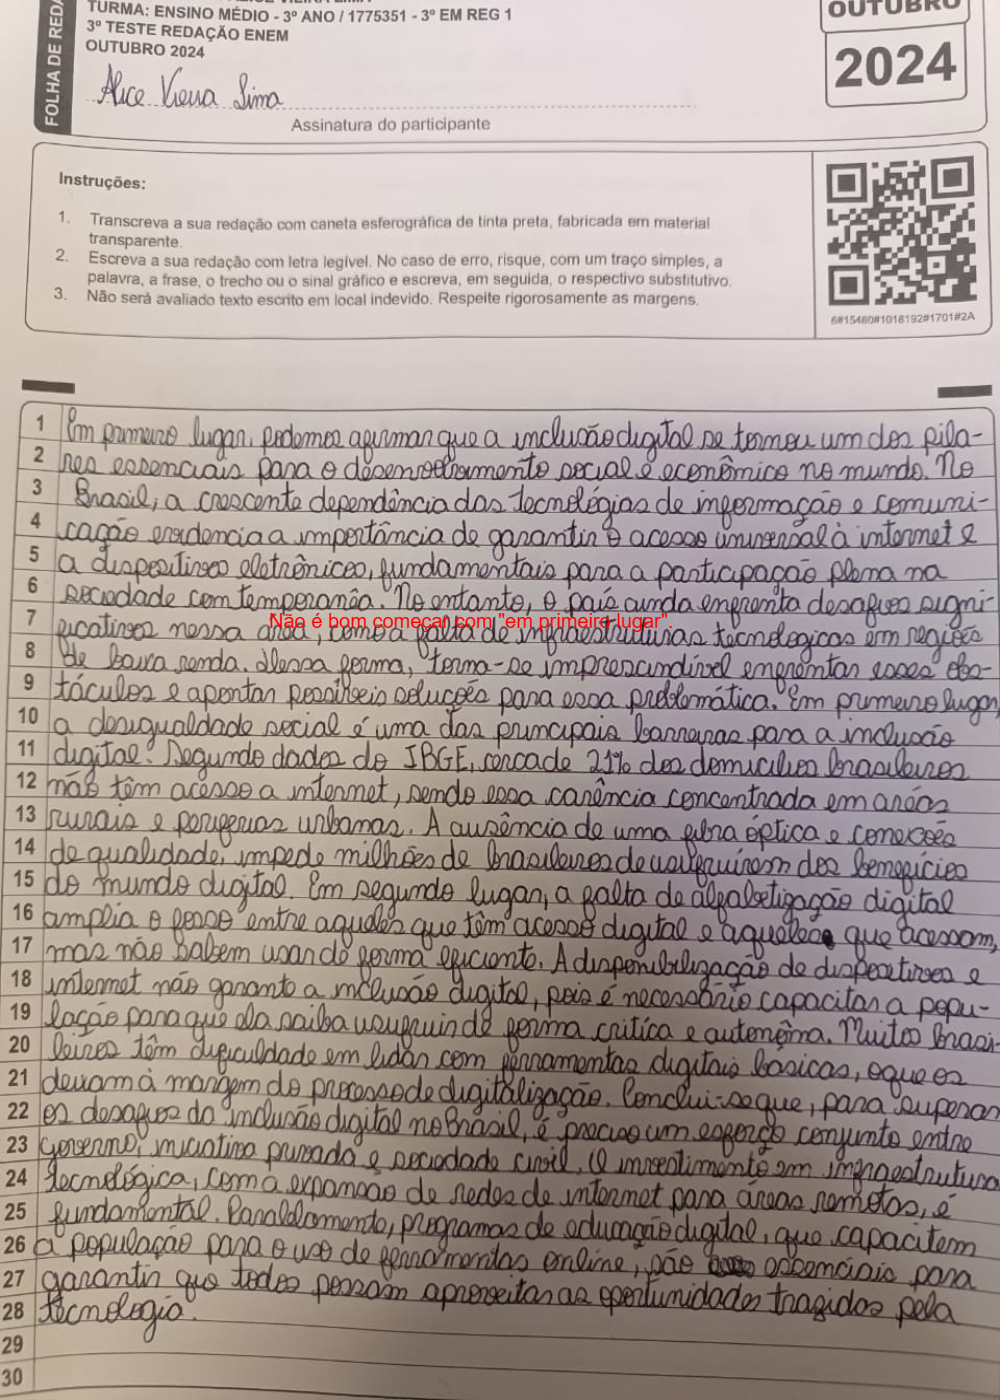 FOLHA DE REDA
TURMA: ENSINO MÉDIO - 3º ANO / 1775351 - 3º EM REG 1
3º TESTE REDAÇÃO ENEM
OUTUBRO 2024
Alice Vieira Lima
Assinatura do participante
OUTUBRO
2024
Instruções:
1. Transcreva a sua redação com caneta esferográfica de tinta preta, fabricada em material
transparente.
2. Escreva a sua redação com letra legível. No caso de erro, risque, com um traço simples, a
palavra, a frase, o trecho ou o sinal gráfico e escreva, em seguida, o respectivo substitutivo.
3. Não será avaliado texto escrito em local indevido. Respeite rigorosamente as margens.
6#15480#1018192#1701#2A
1 Em primeiro lugar, podemos afirmar que a inclusão digital se tornou um dos pila-
2 res essenciais para o desenvolvimento social e econômico no mundo. No
3 Brasil, a crescente dependência das tecnológias de informação e comuni-
4 cação evidencia a importância de garantir o acesso universal à internet e
5 a dispositivos eletrônicos, fundamentais para a participação plena na
6 sociedade contemporanêa. No entanto, o país ainda enfrenta desafios signi-
Não é bom começar com "em primeire lugar".
7 ficativos nessa área, como a falta de infraestruturas tecnologicas em regiões
8 de baixa renda. Dessa forma, torna-se imprescindível enfrentar esses obs-
9 táculos e apontar possíveis soluções para essa problemática. Em primeiro lugar,
10 a desigualdade social é uma das principais barreiras para a inclusão
11 digital. Segundo dados do IBGE, cerca de 21% dos domicílios brasileiros
12 não têm acesso a internet, sendo essa carência concentrada em aréas
13 rurais e periferias urbanas. A ausência de uma fibra óptica e conexões
14 de qualidade, impede milhões de brasileiros de usufruírem dos benefícios
15 do mundo digital. Em segundo lugar, a falta de alfabetização digital
16 amplia o fosso entre aqueles que têm acesso digital e aqueles que acessam,
17 mas não sabem usar de forma eficiente. A disponibilização de dispositivos e
18 internet não garante a inclusão digital, pois é necessário capacitar a popu-
19 lação para que ela saiba usufruir de forma crítica e autonôma. Muitos brasi-
20 leiros têm dificuldade em lidar com ferramentas digitais básicas, o que os
21 deixam à margem do processo de digitalização. Conclui-se que, para superar
22 os desafios da inclusão digital no Brasil, é preciso um esforço conjunto entre
23 governo, iniciativa privada e sociedade civil. O investimento em infraestrutura
24 tecnológica, com a expansão de redes de internet para áreas remotas, é
25 fundamental. Paralelamente, programas de educação digital, que capacitem
26 a população para o uso de ferramentas online, são essenciais para
27 garantir que todos possam aproveitar as oportunidades tragidas pela
28 tecnologia.
29
30